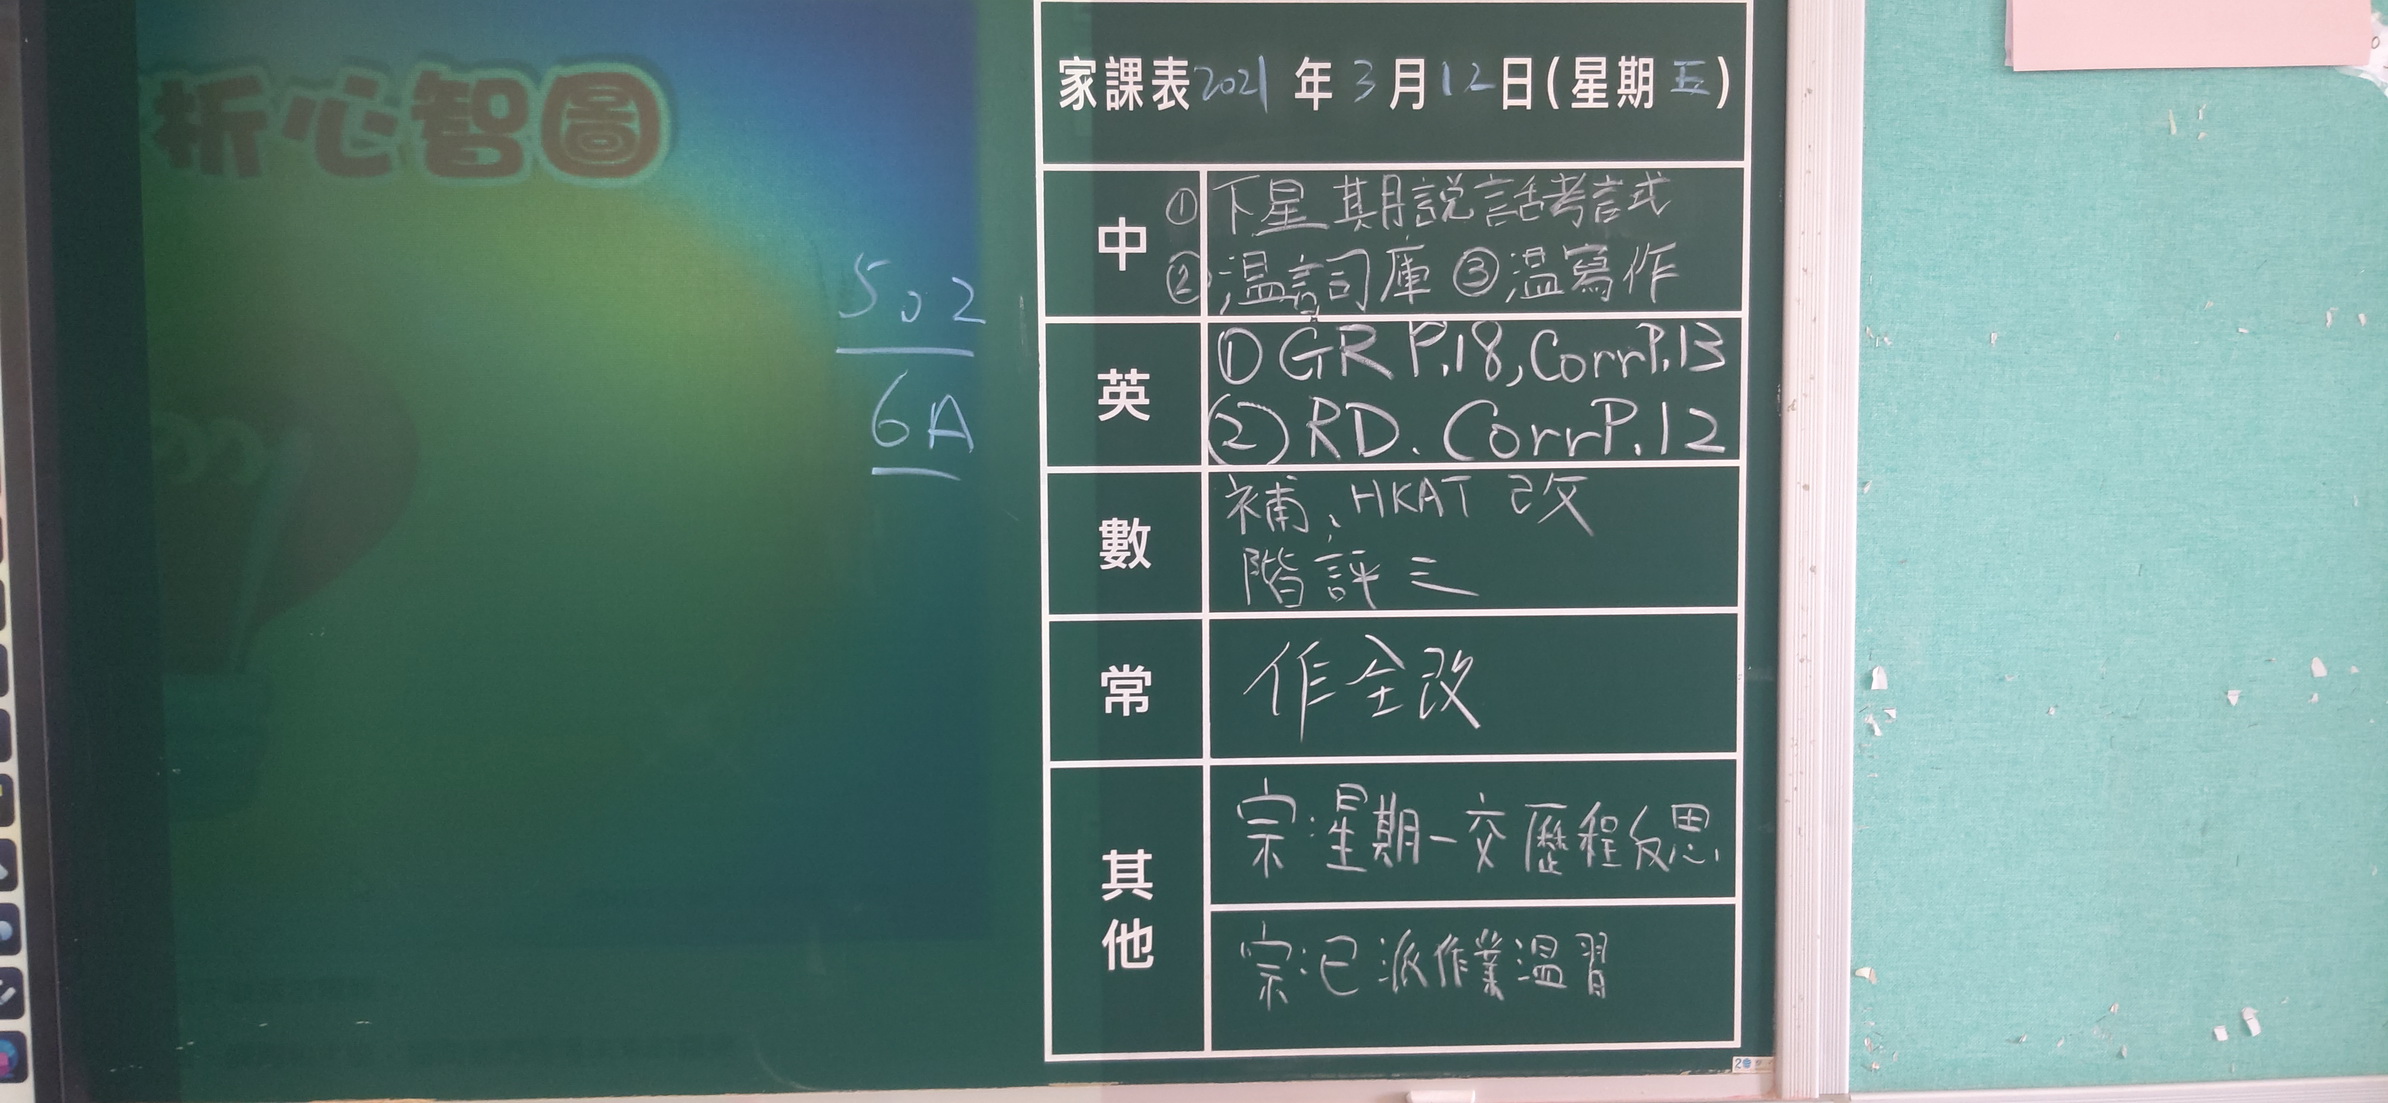 析心智圖
502
6A
家課表2021年3月12日(星期五)
中
①下星期説話考試
②温詞庫 ③温寫作
英
①GR P.18, Corr P.13
②RD. Corr P.12
數
補、HKAT 改
階評三
常
作全改
其他
宗:星期一交歷程反思
宗:已派作業温習